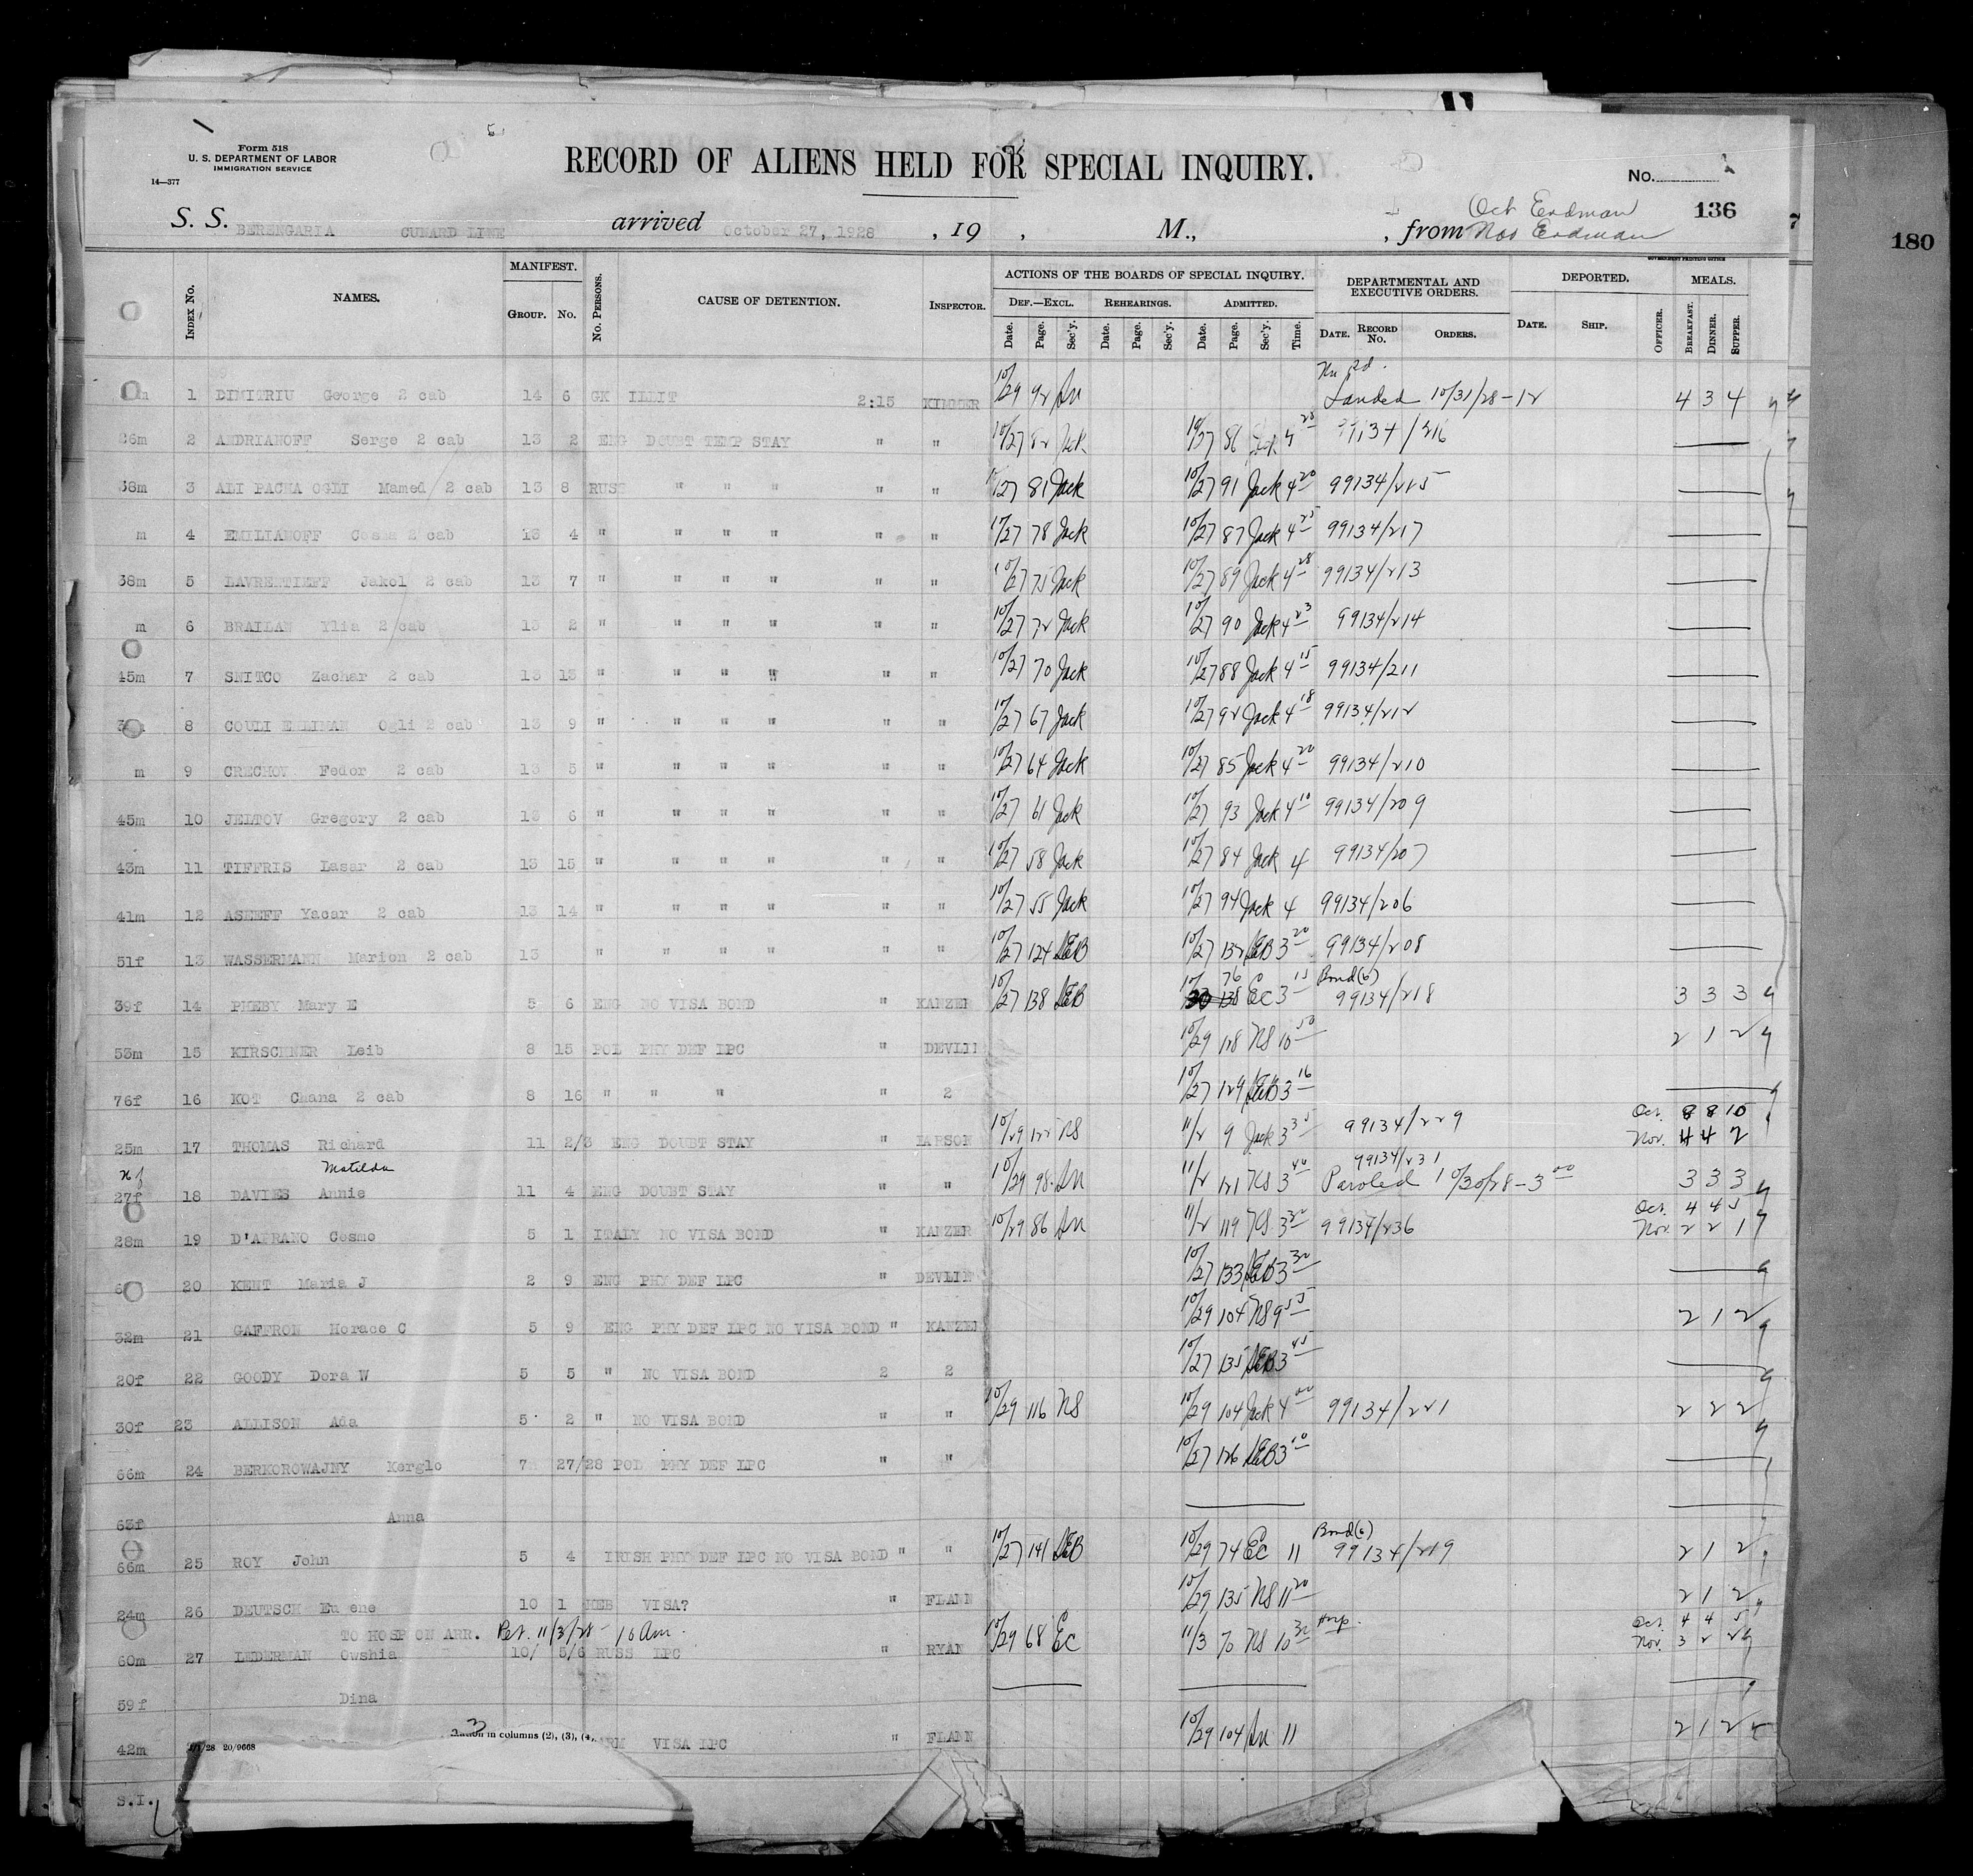 Form 518
U. S. DEPARTMENT OF LABOR
IMMIGRATION SERVICE
14—377
RECORD OF ALIENS HELD FOR SPECIAL INQUIRY.
No.
136
180
S. S. BERENGARIA CUNARD LINE arrived October 27, 1928 , 19 , M., , from Oct Erdman
Nov Erdman
GOVERNMENT PRINTING OFFICE
Index No. NAMES. MANIFEST. Group. No. No. Persons. CAUSE OF DETENTION. Inspector. ACTIONS OF THE BOARDS OF SPECIAL INQUIRY. DEPARTMENTAL AND EXECUTIVE ORDERS. DEPORTED. MEALS.
Def.—Excl. Rehearings. Admitted.
Date. Page. Sec'y. Date. Page. Sec'y. Date. Page. Sec'y. Time. Date. Record No. Orders. Date. Ship. Officer. Breakfast. Dinner. Supper.
1 DIMITRIU George 2 cab 14 6 GK ILLIT 2:15 10/29 92 Landed 10/31/28-12 4 3 4
26m 2 ANDRIANOFF Serge 2 cab 13 2 ENG DOUBT TEMP STAY " " 10/27 82 10/27 86 99134/216
38m 3 ALI PACHA OGLI Mamed 2 cab 13 8 RUSS " " " " " 10/27 81 Jack 10/27 91 Jack 4 20 99134/215
m 4 EMILIANOFF Cosma 2 cab 13 4 " " " " " " 10/27 78 Jack 10/27 87 Jack 4 25 99134/217
38m 5 LAVRENTIEFF Jakol 2 cab 13 7 " " " " " " 10/27 75 Jack 10/27 89 Jack 4 28 99134/213
m 6 BRAILAN Ylia 2 cab 13 2 " " " " " " 10/27 72 Jack 10/27 90 Jack 4 23 99134/214
45m 7 SNITCO Zachar 2 cab 13 13 " " " " " " 10/27 70 Jack 10/27 88 Jack 4 15 99134/211
8 COULI Ogli 2 cab 13 9 " " " " " " 10/27 67 Jack 10/27 92 Jack 4 18 99134/212
m 9 CRECHOV Fedor 2 cab 13 5 " " " " " " 10/27 64 Jack 10/27 85 Jack 4 20 99134/210
45m 10 JELTOV Gregory 2 cab 13 6 " " " " " " 10/27 61 Jack 10/27 93 Jack 4 10 99134/209
43m 11 TIFFRIS Lasar 2 cab 13 15 " " " " " " 10/27 58 Jack 10/27 84 Jack 4 99134/207
41m 12 ASEEFF Yacar 2 cab 13 14 " " " " " " 10/27 55 Jack 10/27 94 Jack 4 99134/206
51f 13 WASSERMANN Marion 2 cab 13 " " " " " " 10/27 124 LEB 10/27 132 LEB 3 20 99134/208
39f 14 PHEBY Mary E 5 6 ENG NO VISA BOND " KANZER 10/27 138 LEB 10/30 76 EC 3 15 Bond(6) 99134/218 3 3 3
53m 15 KIRSCHNER Leib 8 15 POL PHY DEF LPC " DEVLIN 10/29 128 NS 10 50 2 1 2
76f 16 KOT Chana 2 cab 8 16 " " " " 2 10/27 129 LEB 3 16
25m 17 THOMAS Richard 11 2/3 ENG DOUBT STAY " LARSON 10/29 122 NS 11/2 9 Jack 3 35 99134/229 Oct. 8 8 10
Nov. 4 4 2
Matilda
27f 18 DAVIES Annie 11 4 ENG DOUBT STAY " " 10/29 98 11/2 121 NS 3 40 99134/231
Paroled 10/30/28-3 00 3 3 3
28m 19 D'APRANO Cosmo 5 1 ITALY NO VISA BOND " KANZER 10/29 86 11/2 119 NS 3 30 99134/236 Oct. 4 4 5
Nov. 2 2 1
20 KENT Maria J 2 9 ENG PHY DEF LPC " DEVLIN 10/27 133 LEB 3 30
32m 21 GAFFRON Horace C 5 9 ENG PHY DEF LPC NO VISA BOND " KANZER 10/29 104 NS 9 55 2 1 2
20f 22 GOODY Dora W 5 5 " NO VISA BOND 2 2 10/27 135 LEB 3 45
30f 23 ALLISON Ada 5 2 " NO VISA BOND " " 10/29 116 NS 10/29 104 Jack 4 00 99134/221 2 2 2
66m 24 BERKOROWAJNY Kerglo 7 27/28 POL PHY DEF LPC " " 10/27 126 LEB 3 10
63f Anna
66m 25 ROY John 5 4 IRISH PHY DEF LPC NO VISA BOND " " 10/27 141 LEB 10/29 74 EC 11 Bond(6) 99134/219 2 1 2
24m 26 DEUTSCH Eu ene 10 1 HEB VISA? " FLANN 10/29 135 NS 11 20 2 1 2
TO HOSP ON ARR. Ret. 11/3/28 - 10 am.
60m 27 LEDERMAN Owshia 10/ 5/6 RUSS LPC " RYAN 10/29 68 EC 11/3 70 NS 10 30 Hosp. Oct. 4 4 5
Nov. 3 2 2
59f Dina
42m VISA LPC " FLANN 10/29 104 11 2 1 2
20/9668 in columns (2), (3), (4,
S.I.